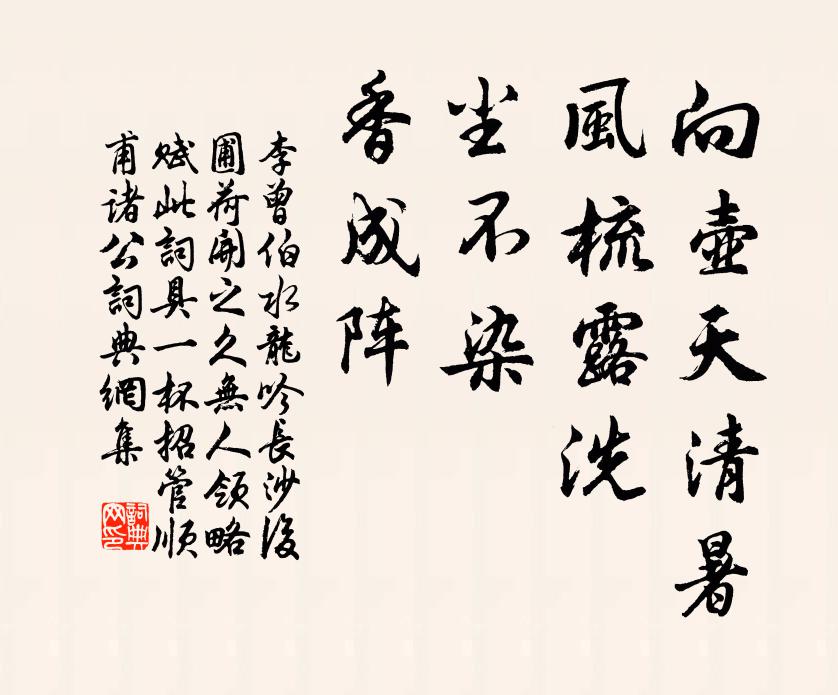 向壺天清暑
風梳露洗
尘不染
香成阵
李曾伯水龍吟長沙後
圃荷開之久無人領略
赋此詞具一杯招管順
甫诸公詞典網集
詞典網印